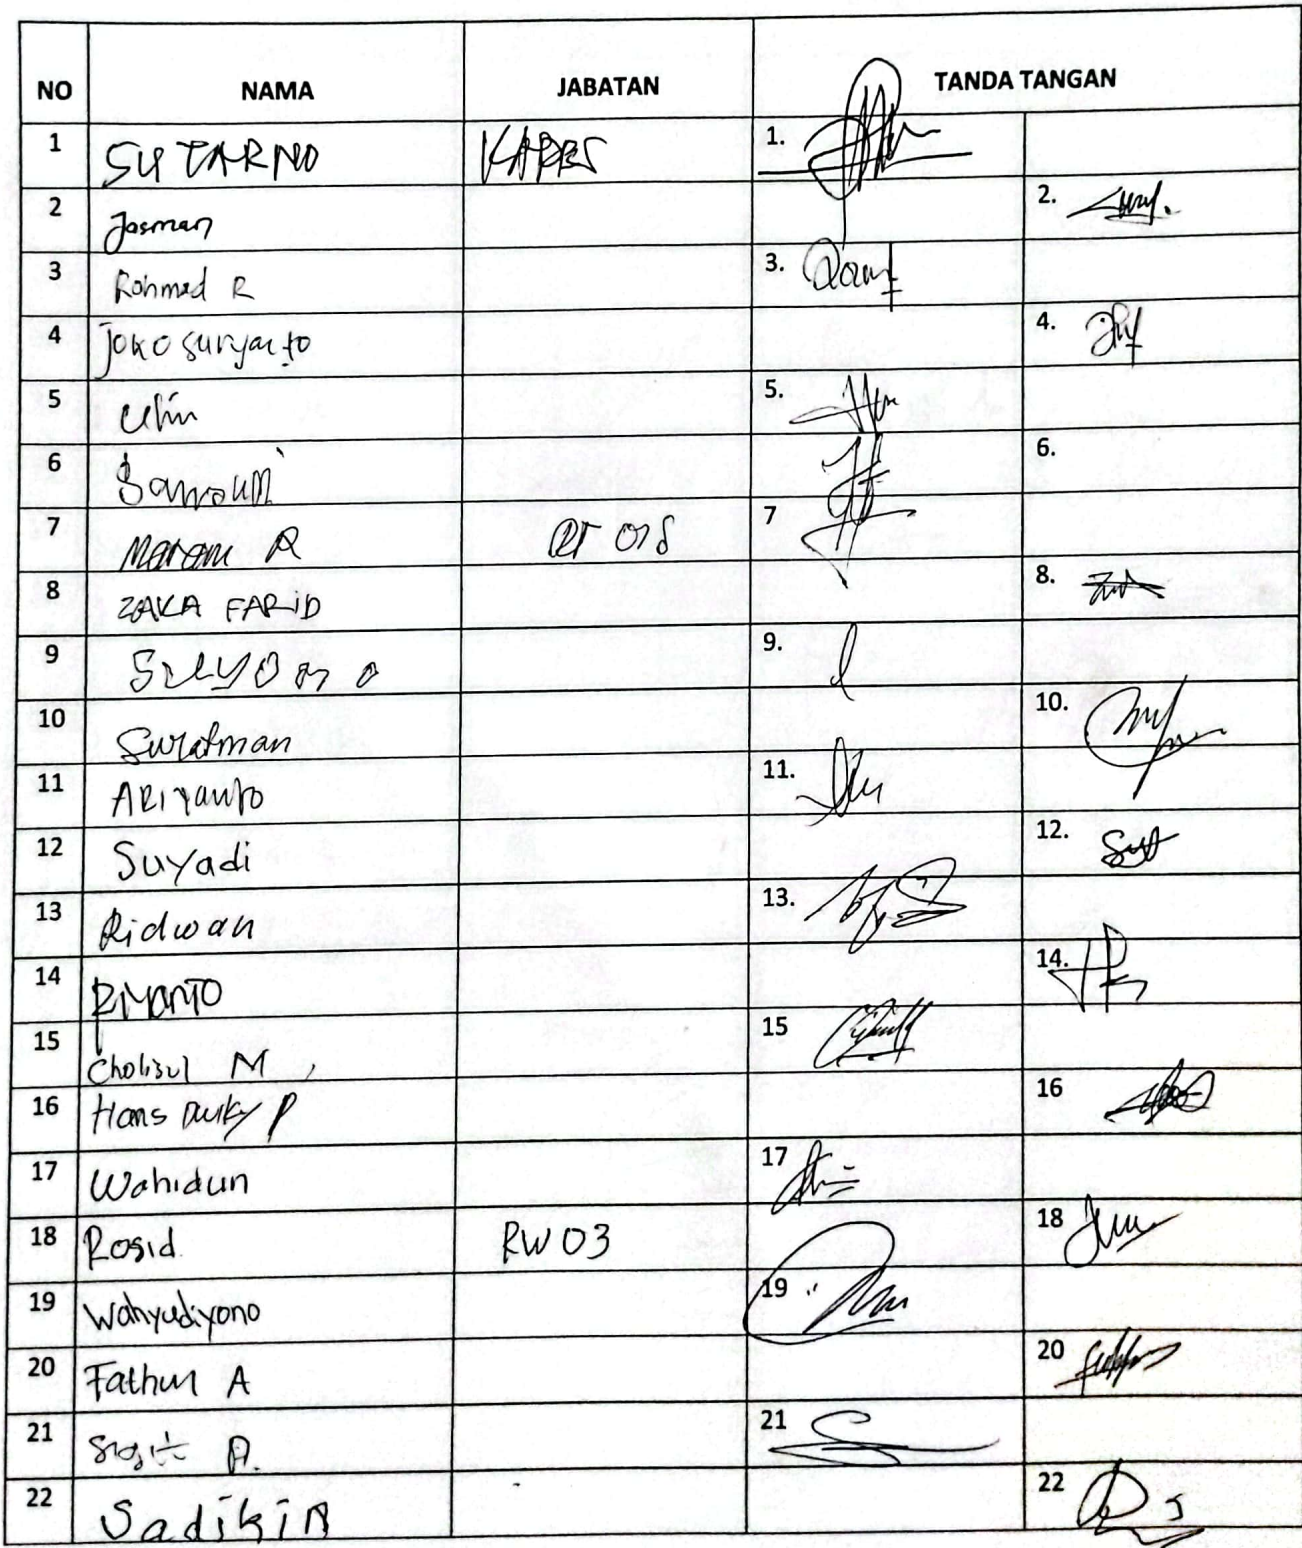 NO NAMA JABATAN TANDA TANGAN
1 SUTARNO KABES 1.
2 Jasman 2.
3 Rohmad R 3.
4 Joko Suryanto 4.
5 Ulin 5.
6 6.
7 R RT 7
8 ZAKA FARID 8.
9 SUYONO 9.
10 Suratman 10.
11 ARIYANTO 11.
12 Suyadi 12.
13 Ridwan 13.
14 RIYANTO 14.
15 Cholisul M 15
16 Hans P 16
17 Wahidun 17
18 Rosid RW 03 18
19 Wahyudiyono 19
20 Fathur A 20
21 Sigit A. 21
22 Sadikin 22